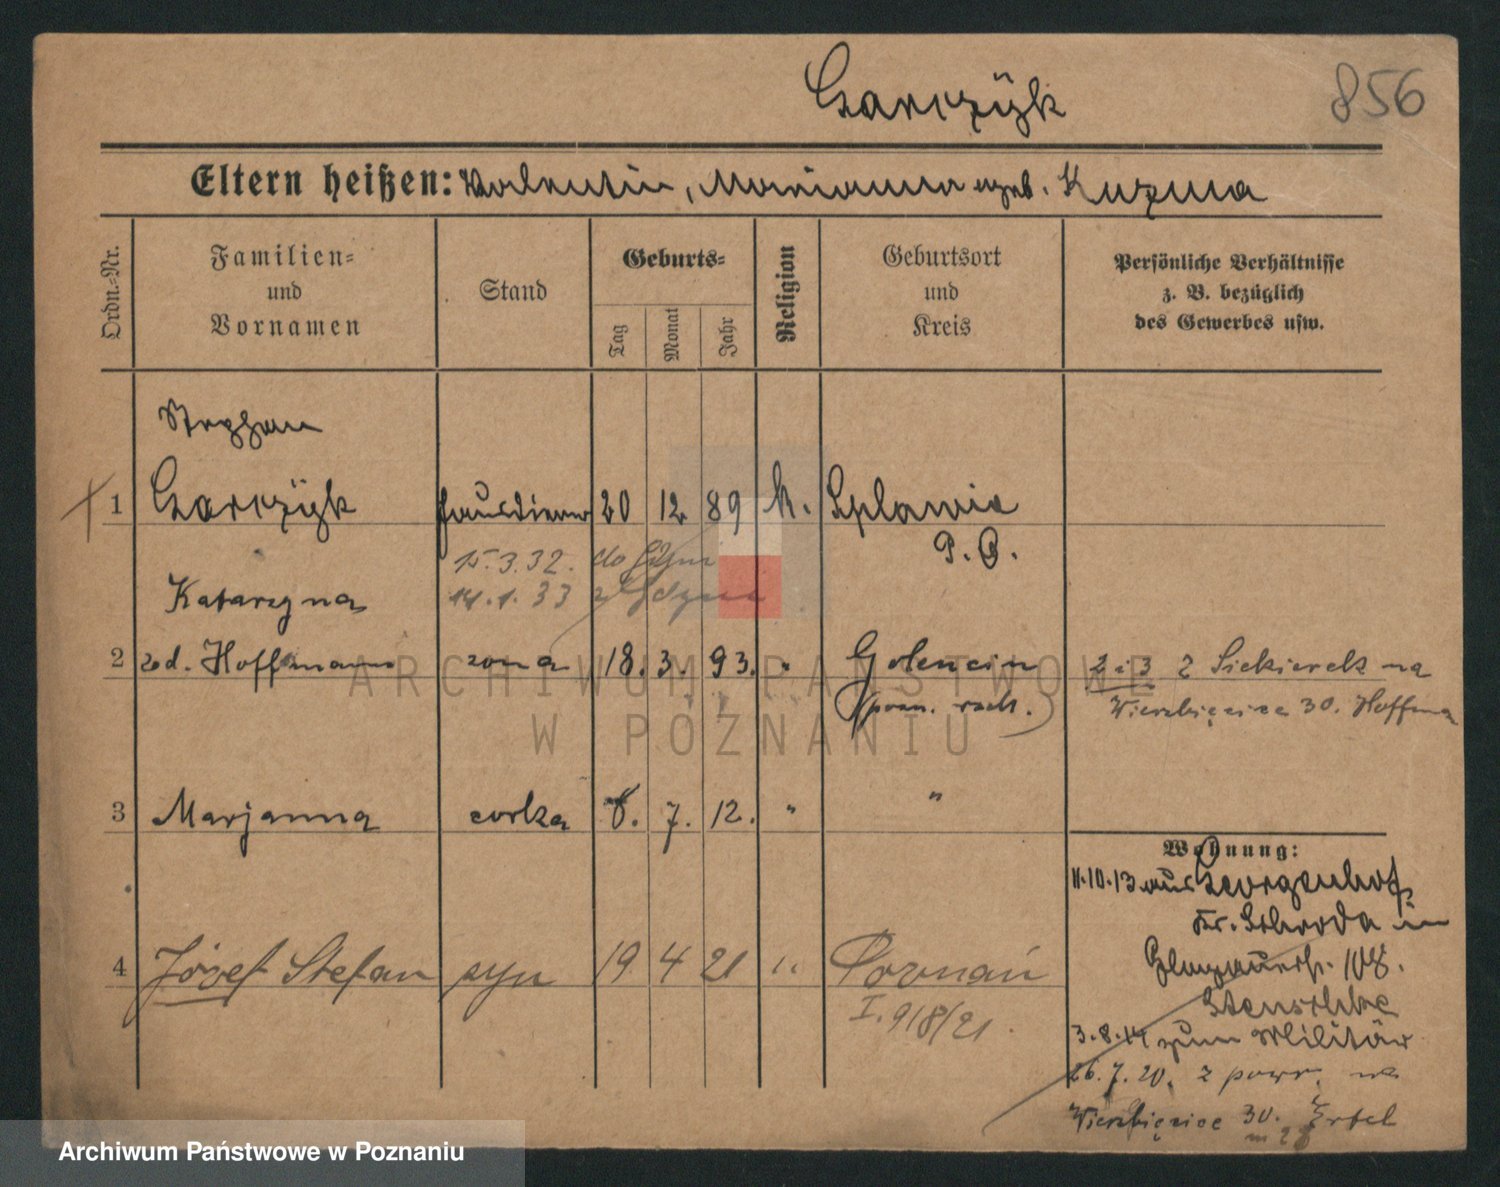 Garczÿk
856
Eltern heißen: Valentin, Marianna geb. Kuzma
Ordn.-Nr.
Familien-
und
Vornamen
Stand
Geburts-
Tag
Monat
Jahr
Religion
Geburtsort
und
Kreis
Persönliche Verhältnisse
z. B. bezüglich
des Gewerbes usw.
Stephan
1 Garczÿk Hausdiener 20 12 89 k. Splawie
P. O.
15.3.32. do
14.1.33 z Gdyni
Katarzyna
2 zd. Hoffmann zona 18. 3. 93. " Golencin
(pozn. zach.)
2 i 3 z Siekierek na
Wierzbięcice 30. Hoffma
3 Marjanna corka 8. 7. 12. " "
Wohnung:
11.10.13 aus Georgenhof
Kr. Schroda in
Glogauerstr. 108.
3.8.14 zum Militär
26.7.20. z powr. na
Wierzbięcice 30. Ertel
m 28
4 Józef Stefan syn 19 4 21 " Poznań
I. 918/21
ARCHIWUM PAŃSTWOWE
W POZNANIU
Archiwum Państwowe w Poznaniu